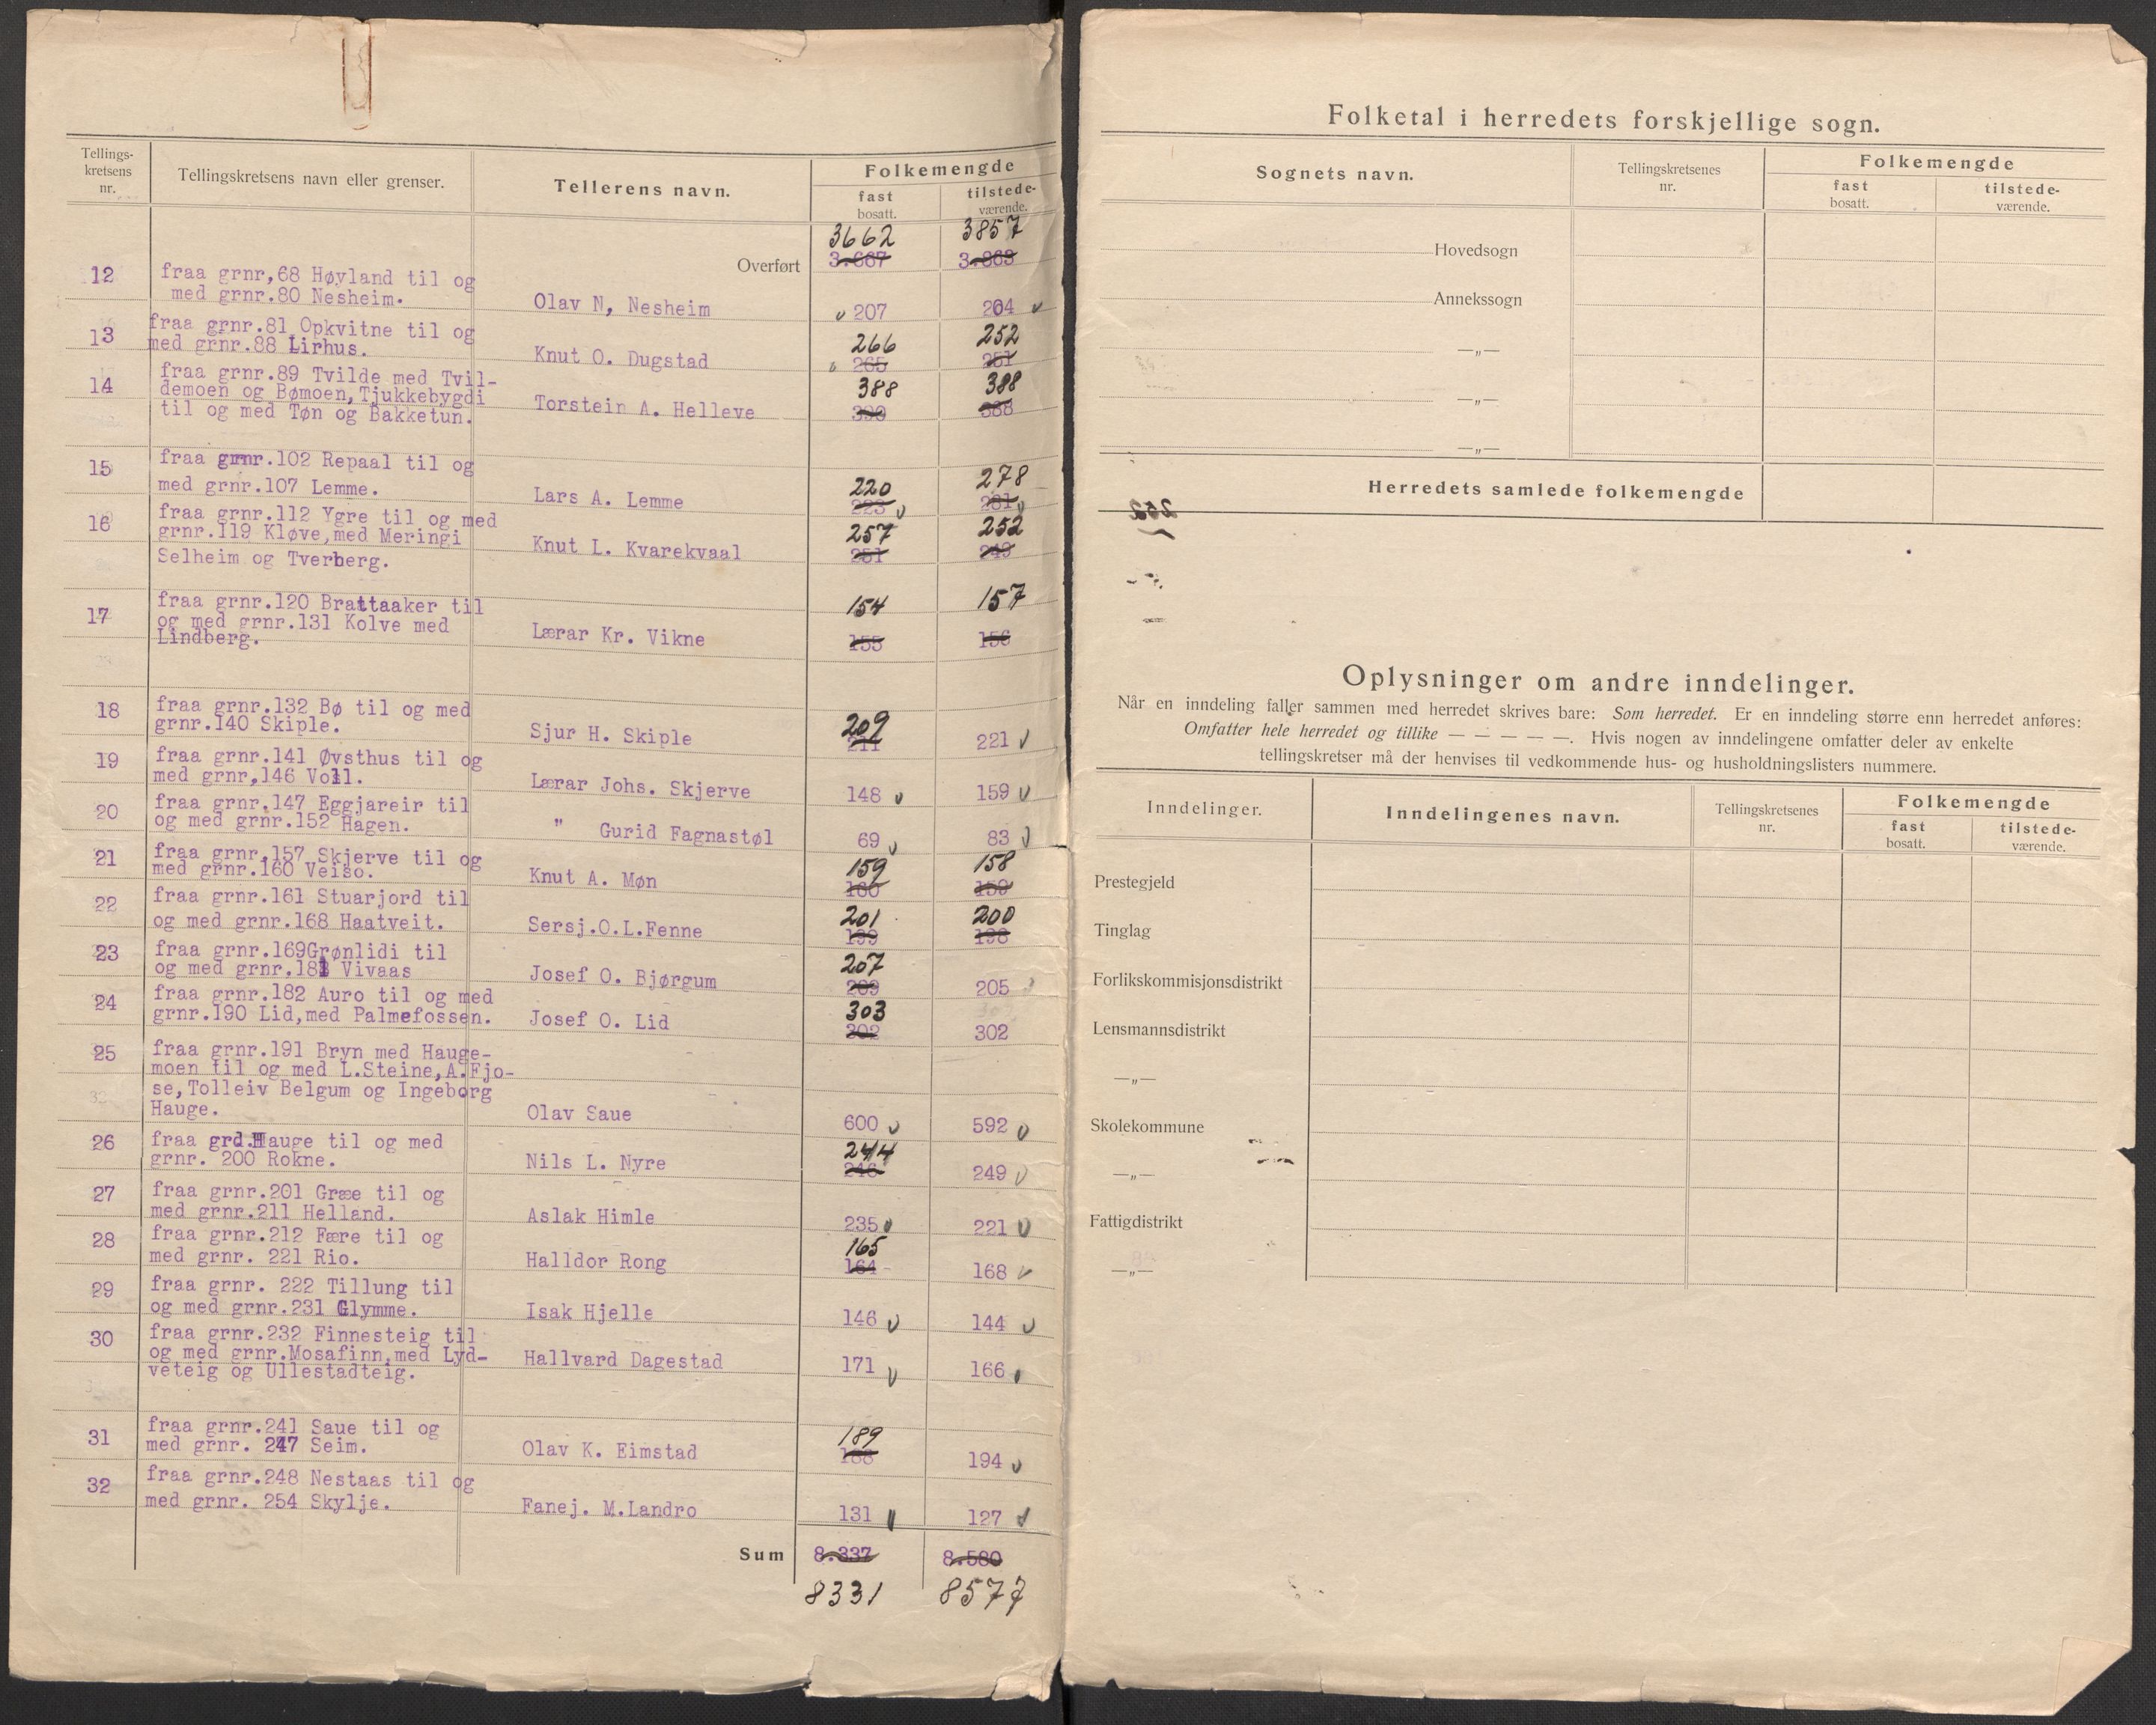 Tellings-
kretsens
nr.
Tellingskretsens navn eller grenser.
Tellerens navn.
Folkemengde
fast
bosatt.
tilstede-
værende.
3662 3857
Overført 3.667 3.863
12 fraa grnr,68 Høyland til og
med grnr.80 Nesheim. Olav N, Nesheim 207 204
13 fraa grnr.81 Opkvitne til og 266 252
med grnr.88 Lirhus. Knut O. Dugstad 265 251
14 fraa grnr.89 Tvilde med Tvil-
demoen og Bømoen,Tjukkebygdi 388 388
til og med Tøn og Bakketun. Torstein A. Helleve 390 368
15 fraa grnr.102 Repaal til og 220 278
med grnr.107 Lemme. Lars A. Lemme 223 281
16 fraa grnr.112 Ygre til og med 257 252
grnr.119 Kløve,med Meringi Knut L. Kvarekvaal 251 249
Selheim og Tverberg.
17 fraa grnr.120 Brattaaker til 154 157
og med grnr.131 Kolve med
Lindberg. Lærar Kr. Vikne 155 156
18 fraa grnr.132 Bø til og med 209
grnr.140 Skiple. Sjur H. Skiple 211 221
19 fraa grnr.141 Øvsthus til og
med grnr,146 Voll. Lærar Johs. Skjerve 148 159
20 fraa grnr.147 Eggjareir til
og med grnr.152 Hagen. " Gurid Fagnastøl 69 83
21 fraa grnr.157 Skjerve til og 159 158
med grnr.160 Veiso. Knut A. Møn 160 159
22 fraa grnr.161 Stuarjord til 201 200
og med grnr.168 Haatveit. Sersj.O.L.Fenne 199 198
23 fraa grnr.169Grønlidi til 207
og med grnr.181 Vivaas Josef O. Bjørgum 209 205
24 fraa grnr.182 Auro til og med 303
grnr.190 Lid,med Palmefossen. Josef O. Lid 302 302
25 fraa grnr.191 Bryn med Hauge-
moen til og med L.Steine,A.Fjo-
se,Tolleiv Belgum og Ingeborg
Hauge. Olav Saue 600 592
26 fraa grd.Hauge til og med 244
grnr. 200 Rokne. Nils L. Nyre 246 249
27 fraa grnr.201 Græe til og
med grnr.211 Helland. Aslak Himle 235 221
28 fraa grnr.212 Fære til og 165
med grnr. 221 Rio. Halldor Rong 164 168
29 fraa grnr. 222 Tillung til
og med grnr.231 Glymme. Isak Hjelle 146 144
30 fraa grnr.232 Finnesteig til
og med grnr.Mosafinn,med Lyd-
veteig og Ullestadteig. Hallvard Dagestad 171 166
31 fraa grnr.241 Saue til og 189
med grnr. 247 Seim. Olav K. Eimstad 188 194
32 fraa grnr.248 Nestaas til og
med grnr. 254 Skylje. Fanej. M.Landro 131 127
Sum 8.337 8.580
8331 8577
Folketal i herredets forskjellige sogn.
Sognets navn.
Tellingskretsenes
nr.
Folkemengde
fast
bosatt.
tilstede-
værende.
Hovedsogn
Annekssogn
—„—
—„—
—„—
Herredets samlede folkemengde
Oplysninger om andre inndelinger.
Når en inndeling faller sammen med herredet skrives bare: Som herredet. Er en inndeling større enn herredet anføres:
Omfatter hele herredet og tillike — — — — —. Hvis nogen av inndelingene omfatter deler av enkelte
tellingskretser må der henvises til vedkommende hus- og husholdningslisters nummere.
Inndelinger.
Inndelingenes navn.
Tellingskretsenes
nr.
Folkemengde
fast
bosatt.
tilstede-
værende.
Prestegjeld
Tinglag
Forlikskommisjonsdistrikt
Lensmannsdistrikt
—„—
Skolekommune
—„—
Fattigdistrikt
—„—